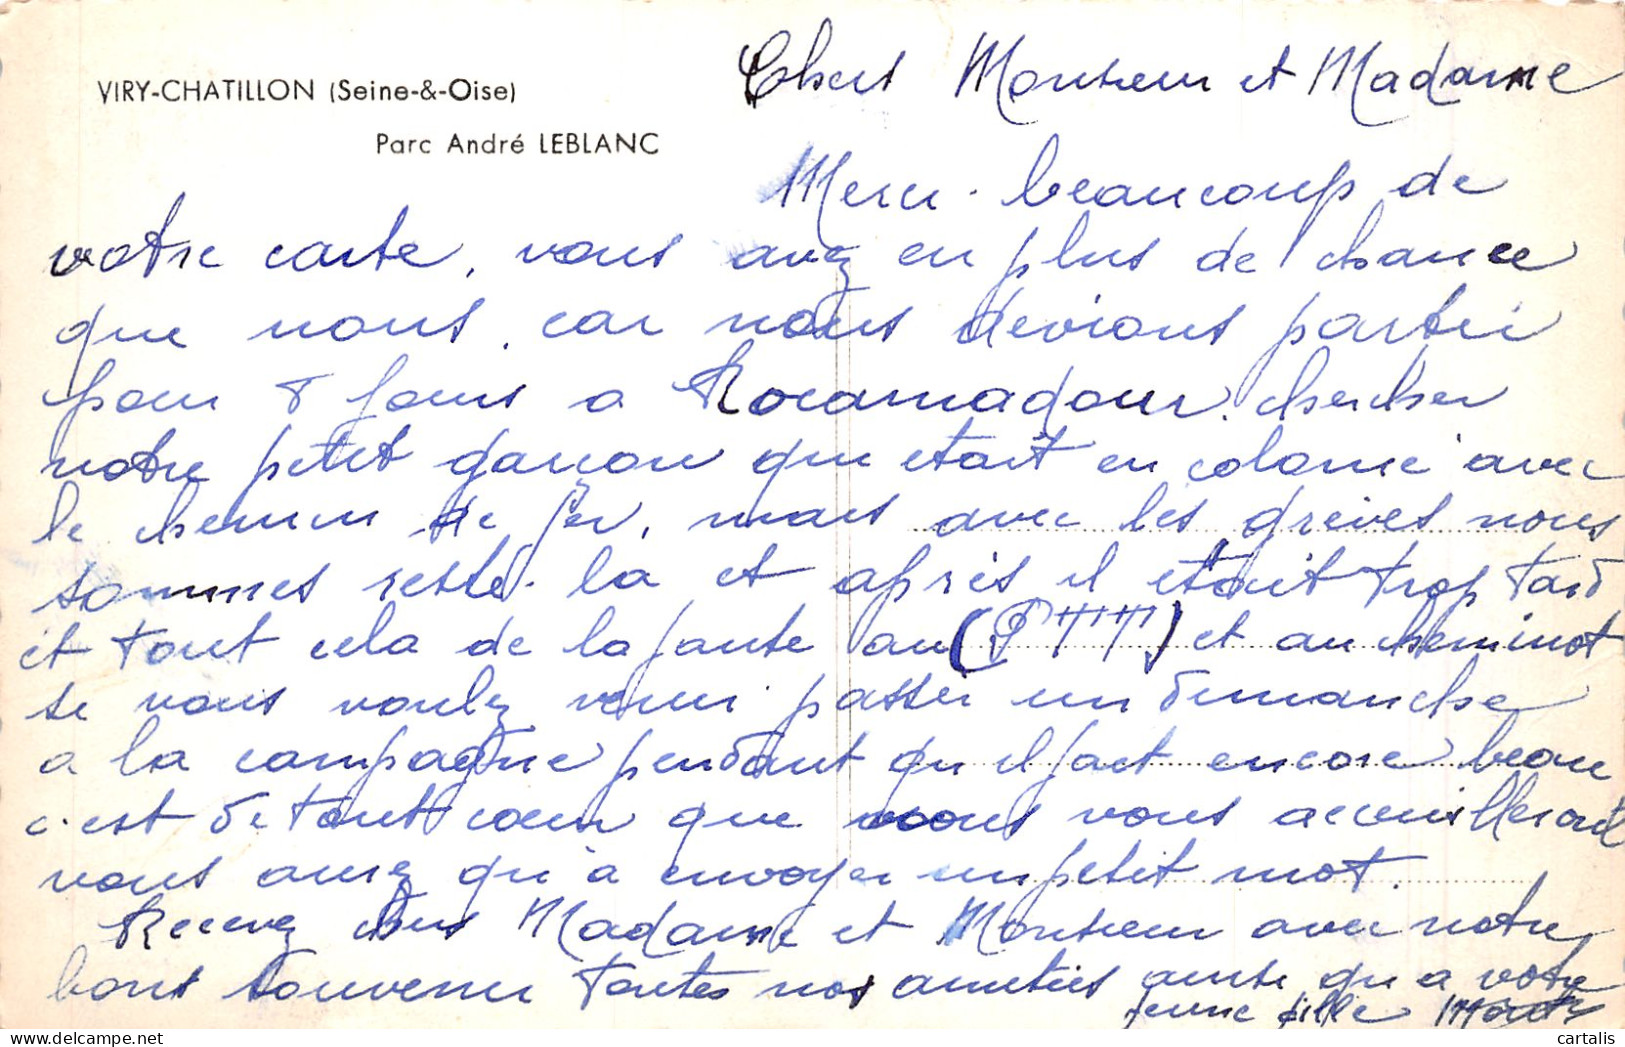 VIRY-CHATILLON (Seine-&-Oise)
Parc André LEBLANC
Chers Monsieur et Madame
Merci beaucoup de
votre carte, vous avez eu plus de chance
que nous, car nous devions partir
pour 8 jours a Rocamadour. chercher
notre petit garçon qui etait en colonie avec
le chemin de fer, mais avec les grèves nous
sommes resté la et après il etait trop tard
et tout cela de la faute au (PTTT) et au cheminot
se vous voulez venir passer un dimanche
a la campagne pendant qu'il fait encore beau
c'est de tout cœur que nous vous accueillerons
vous aurez qu'a envoyer un petit mot.
Recevez chers Madame et Monsieur avec notre
bons souvenir toutes nos amitiés ainsi qu'a votre
jeune fille
cartalis